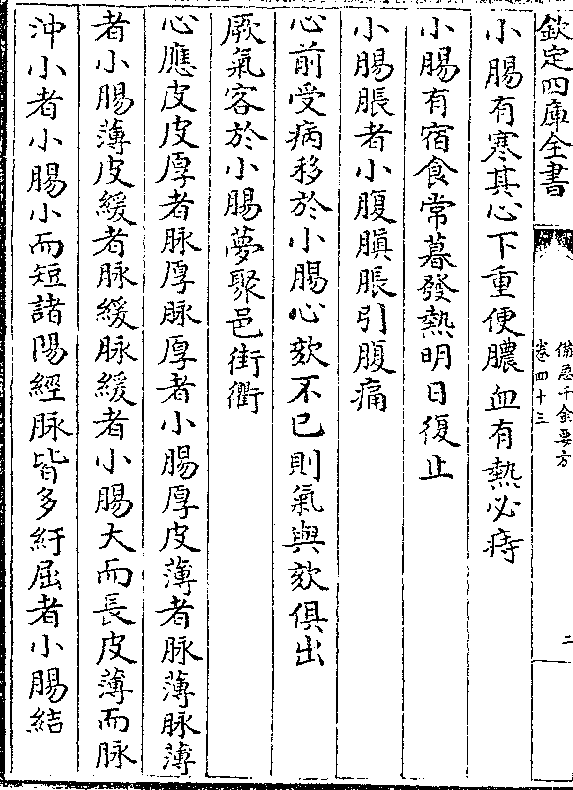 欽定四庫全書
備急千金要方
卷四十三
二
小腸有寒其心下重便膿血有熱必痔
小腸有宿食常暮發熱明日復止
小腸脹者小腹䐜脹引腹痛
心前受病移於小腸心欬不已則氣與欬俱出
厥氣客於小腸夢聚邑街衢
心應皮皮厚者脉厚脉厚者小腸厚皮薄者脉薄脉薄
者小腸薄皮緩者脉緩脉緩者小腸大而長皮薄而脉
沖小者小腸小而短諸陽經脉皆多紆屈者小腸結